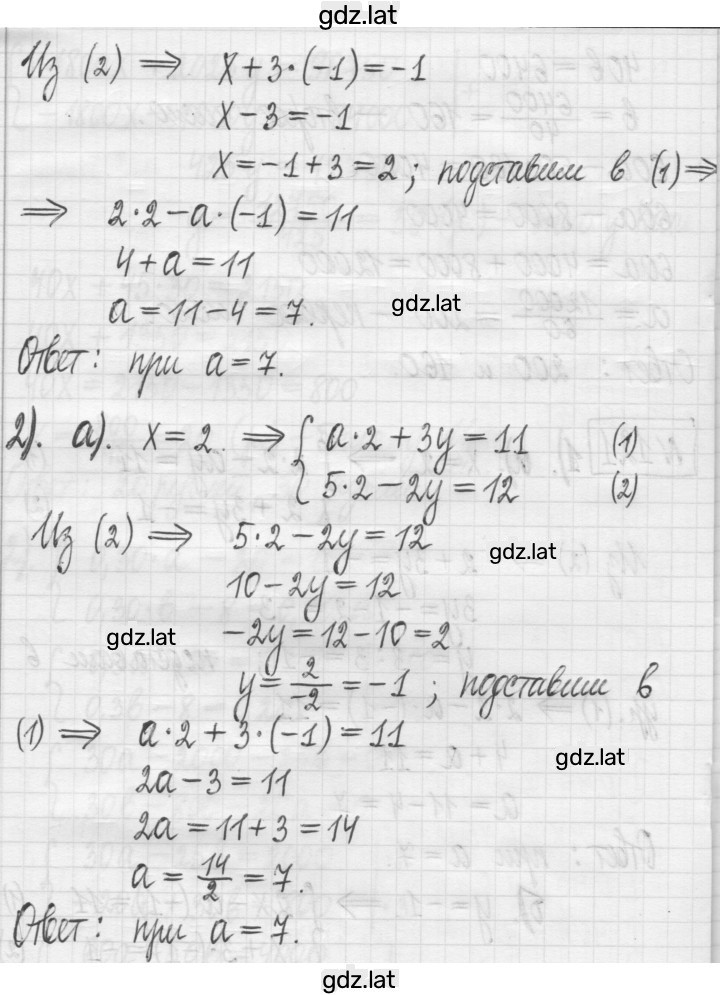 gdz.lat
Из (2) ⇒ x+3·(-1)=-1
x-3=-1
x=-1+3=2; подставим в (1)⇒
⇒ 2·2-a·(-1)=11
4+a=11
a=11-4=7.
gdz.lat
Ответ: при a=7.
2). а). x=2. ⇒ { a·2+3y=11 (1)
5·2-2y=12 (2)
Из (2) ⇒ 5·2-2y=12
gdz.lat
10-2y=12
-2y=12-10=2
gdz.lat
y=2/-2=-1; подставим в
(1) ⇒ a·2+3·(-1)=11
gdz.lat
2a-3=11
2a=11+3=14
a=14/2=7.
Ответ: при a=7.
gdz.lat